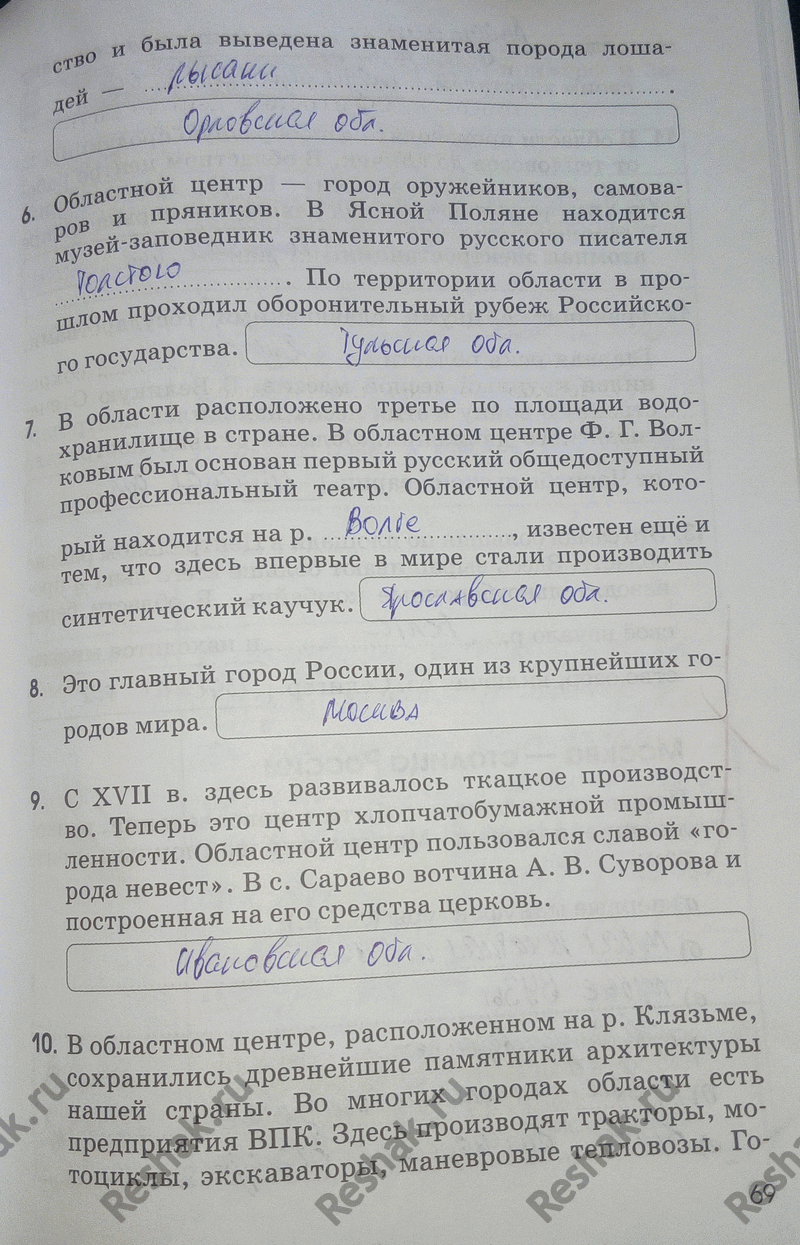 ство и была выведена знаменитая порода лоша-
дей — рысаки.
Орловская обл.
6. Областной центр — город оружейников, самова-
ров и пряников. В Ясной Поляне находится
музей-заповедник знаменитого русского писателя
Толстого. По территории области в про-
шлом проходил оборонительный рубеж Российско-
го государства. Тульская обл.
7. В области расположено третье по площади водо-
хранилище в стране. В областном центре Ф. Г. Вол-
ковым был основан первый русский общедоступный
профессиональный театр. Областной центр, кото-
рый находится на р. Волге, известен ещё и
тем, что здесь впервые в мире стали производить
синтетический каучук. Ярославская обл.
8. Это главный город России, один из крупнейших го-
родов мира. Москва
9. С XVII в. здесь развивалось ткацкое производст-
во. Теперь это центр хлопчатобумажной промыш-
ленности. Областной центр пользовался славой «го-
рода невест». В с. Сараево вотчина А. В. Суворова и
построенная на его средства церковь.
Ивановская обл.
10. В областном центре, расположенном на р. Клязьме,
сохранились древнейшие памятники архитектуры
нашей страны. Во многих городах области есть
предприятия ВПК. Здесь производят тракторы, мо-
тоциклы, экскаваторы, маневровые тепловозы. Го-
69
Reshak.ru Reshak.ru Reshak.ru